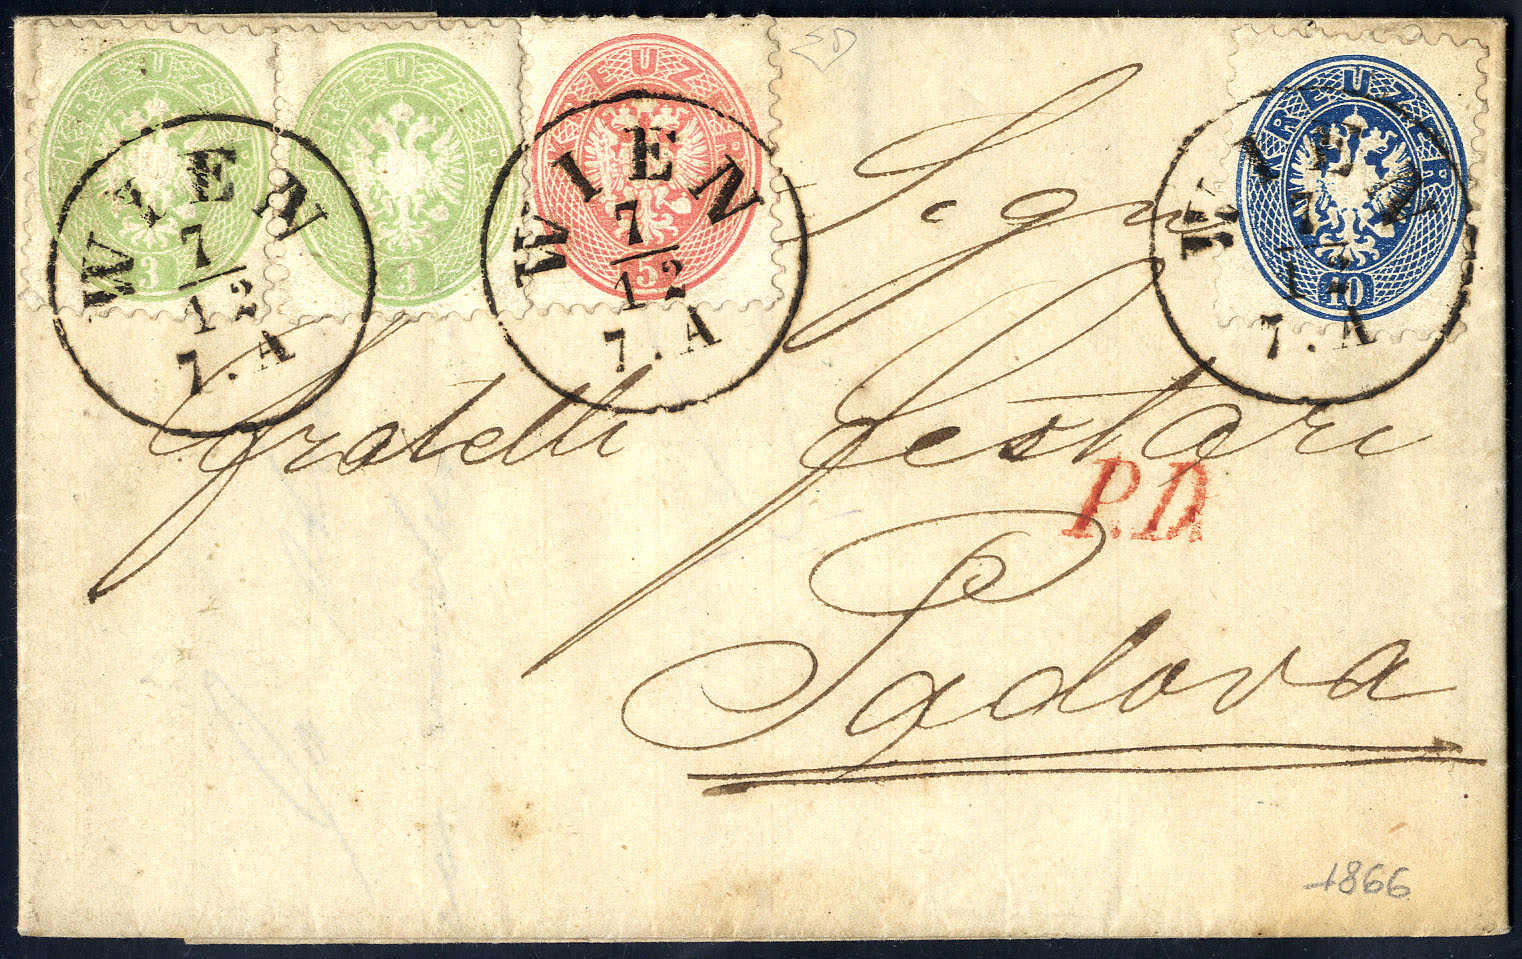 KREUZER KREUZER KREUZER KREUZER
3 3 5 10
WIEN
7
12
7.A
WIEN
7
12
7.A
WIEN
7
12
7.A
Sign
Fratelli Testari
P.D.
Padova
1866